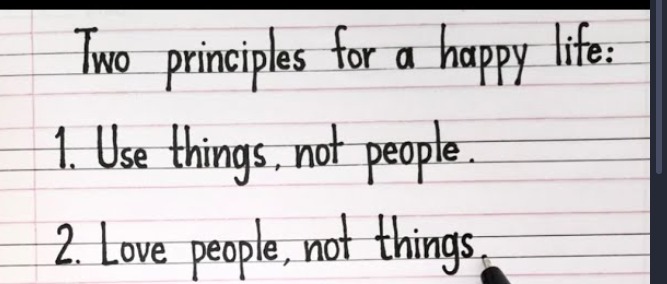 Two principles for a happy life:
1. Use things, not people.
2. Love people, not things.